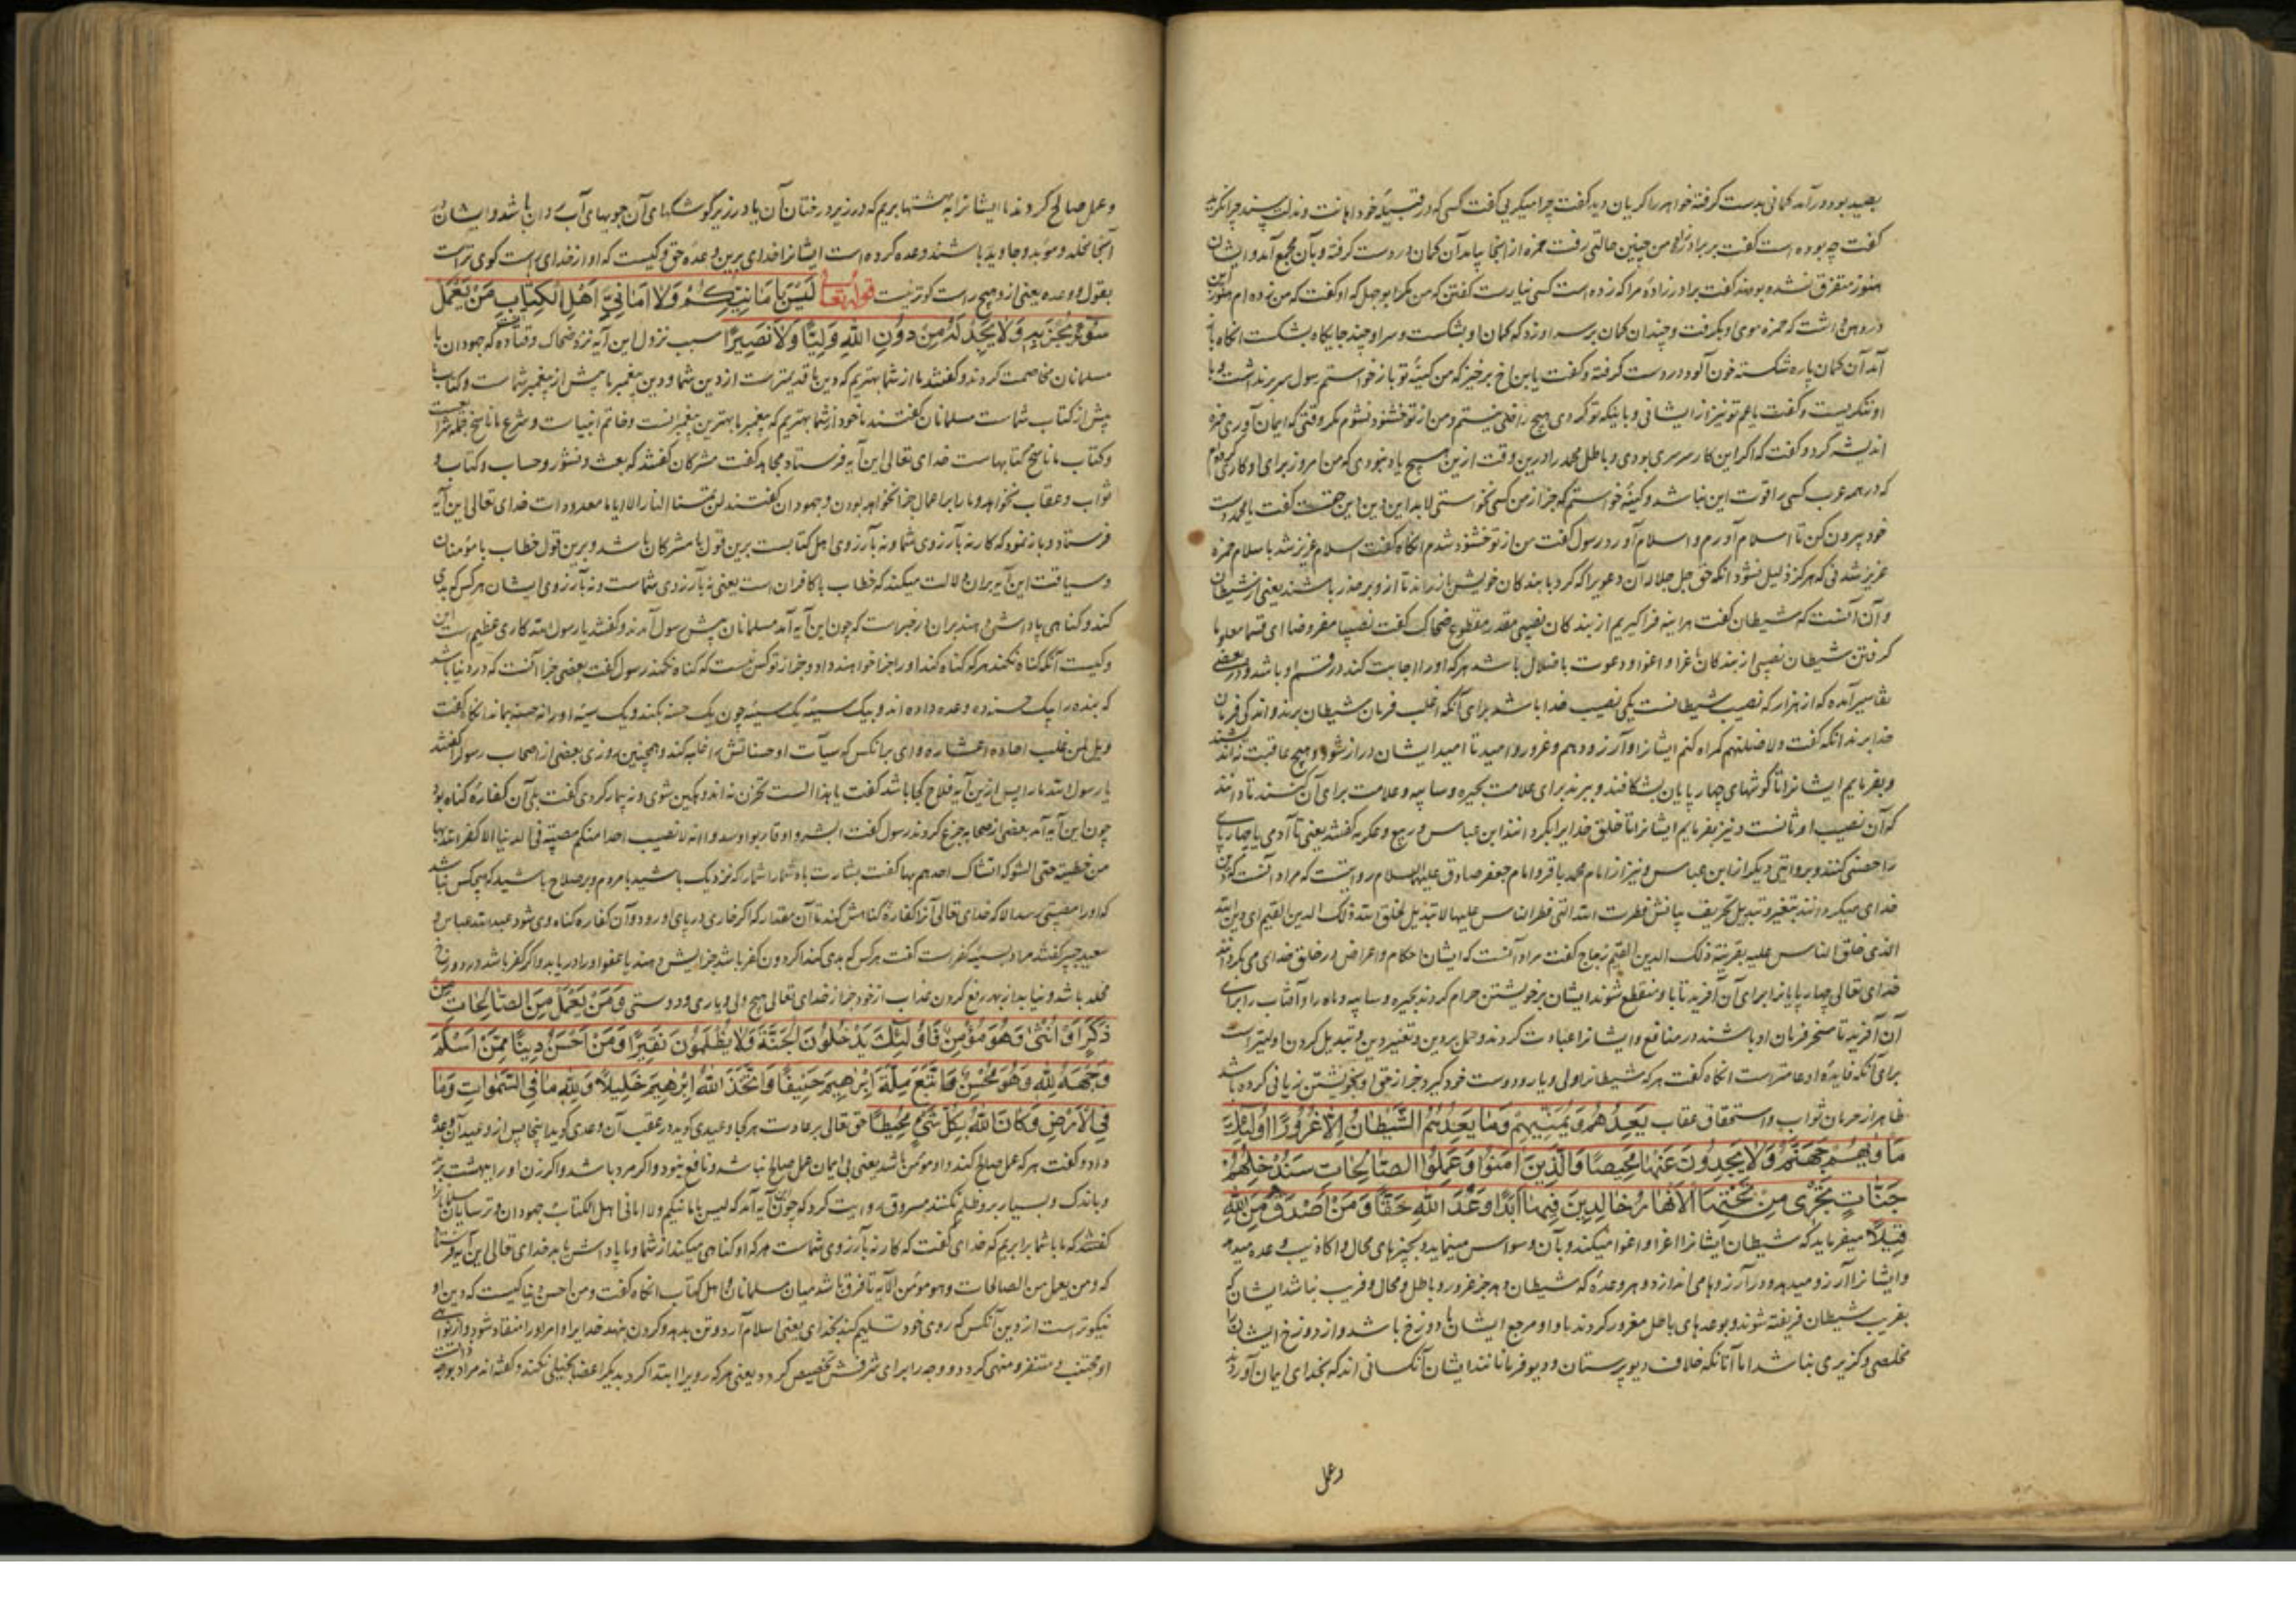 بصید بود درآمد کمانی بدست گرفته خواهر را گریان دید گفت چرا میگریی گفت کسی که در قبیله خود اهانت و
گفت چه بوده است گفت بر برادرزاده من چنین حالتی رفت حمزه از آنجا بیامد آن کمان در دست گرفته و بآن مجمع آمد و ایشان
هنوز متفرق نشده بودند گفت برادرزاده مرا که زده است کسی نیارست گفتن که من مگر ابوجهل که او گفت که من زده ام
حمزه سوی او برفت و چندان کمان بر سر او زد که کمان او بشکست و سر او چند جایگاه بشکست آنگاه
آمد آن کمان پاره شکسته خون آلود در دست گرفته و گفت یا بن اخ برخیز که من کینه تو بازخواستم رسول سر برنداشت و با
او ننگریست و گفت یا عم تو نیز از ایشانی و باینکه تو کردی هیچ راضی نیستم و من از تو خشنود نشوم مگر وقتی که ایمان آوری حمزه
اندیشه کرد و گفت که اگر این کار سرسری بودی و باطل محمد را درین وقت ازین هیچ یاد نبودی که من امروز برای او کار
که در همه عرب کسی را قوت این نباشد و کینه خواستم که جز از من کسی نخواستی لابد این دین حق است گفت یا محمد دست
خود بیرون کن تا اسلام آورم و اسلام آورد رسول گفت من از تو خشنود شدم آنگاه گفت اسلام عزیز شد باسلام حمزه
عزیز شدنی که هرگز ذلیل نشود آنگه حق جل جلاله آن دعوی را که کرد با بندگان خویش باز راند تا از و بر حذر باشند یعنی از شیطان
و آن آنست که شیطان گفت هر اینه فراگیریم از بندگان نصیبی مقدر مقطوع ضحاک گفت نصیبا مفروضا ای قسما معلوما
گرفتن شیطان نصیبی از بندگان باغرا و اغوا و دعوت با ضلال باشد هر که او را اجابت کند در قسم او باشد و در بعضی
تفاسیر آمده که از هزار که نصیب شیطانست یکی نصیب خدا باشد برای آنکه اغلب فرمان شیطان برند و اندکی فرمان
خدا برند آنگه گفت ولاضلنهم گمراه کنم ایشانرا و آرزو دهم و غرور و امید تا امید ایشان دراز شود و هیچ عاقبت نه
و بفرمایم ایشانرا تا گوشهای چهارپایان بشکافند و ببرند برای علامت بحیره و سایبه و علامت برای آن کنند تا دانند
که آن نصیب اوثانست و نیز بفرمایم ایشانرا تا خلق خدایرا بگردانند ابن عباس و ربیع و عکرمه گفتند یعنی تا آدمی یا چهارپای
را خصی کنند و بروایتی دیگر از ابن عباس و نیز از امام محمد باقر و امام جعفر صادق علیهما السلام روایتست که مراد آنست که دین
خدای میگردانند بتغیر و تبدیل تحریف بیانش فطرت الله التی فطر الناس علیها لا تبدیل لخلق الله ذلک الدین القیم ای دین الله
الذی خلق الناس علیه بقرینة ذلک الدین القیم زجاج گفت مراد آنست که ایشان احکام و اعراض در خلق خدای می بگردانند
خدای تعالی چهارپایانرا برای آن آفرید تا با و منتفع شوند ایشان بر خویشتن حرام کردند بحیره و سایبه و ماه را و آفتاب را برای
آن آفرید تا مسخر فرمان او باشند در منافع و ایشانرا عبادت کردند و حمل بر دین و تغییر دین و تبدیل کردن اولیتر است
برای آنکه فایده او عامتر است آنگاه گفت هر که شیطانرا ولی و یار و دوست خود گیرد جز از حق او بخویشتن زیانی کرده باشد
ظاهر از حرمان ثواب و استحقاق عقاب یَعِدُهُمْ وَیُمَنِّیهِمْ وَمَا یَعِدُهُمُ الشَّیْطَانُ اِلَّا غُرُورًا اُولٰئِکَ
مَأْوٰیهُمْ جَهَنَّمُ وَلَا یَجِدُونَ عَنْهَا مَحِیصًا وَالَّذِینَ اٰمَنُوا وَعَمِلُوا الصَّالِحَاتِ سَنُدْخِلُهُمْ
جَنَّاتٍ تَجْرِی مِنْ تَحْتِهَا الْاَنْهَارُ خَالِدِینَ فِیهَا اَبَدًا وَعْدَ اللّٰهِ حَقًّا وَمَنْ اَصْدَقُ مِنَ اللّٰهِ
قِیلًا میفرماید که شیطان ایشانرا اغرا و اغوا میکند و بآن وسواس مینماید و بچیزهای محال و اکاذیب وعده میدهد
و ایشانرا آرزو میدهد و در آرزوها می اندازد و هر وعده که شیطان دهد جز غرور و باطل و محال و فریب نباشد ایشان که
بفریب شیطان فریفته شوند و بوعدهای باطل مغرور گردند ماوا و مرجع ایشان با دوزخ باشد و از دوزخ ایشانرا
مخلصی و گزیری نباشد اما آنانکه خلاف دیوپرستان و دیوفرمانانند ایشان آنکسانی اند که بخدای ایمان آوردند
وعمل
وعمل صالح کردند ما ایشانرا به بهشتها بریم که در زیر درختان آن یا در زیر کوشکهای آن جویهای آب روان باشد و ایشان در
آنجا مخلد و موبد و جاوید باشند وعده کرده است ایشانرا خدای برین وعده حق و کیست که او از خدای است گوی تر است
بقول و وعده یعنی ازو هیچ راست گوتر نیست قوله تعالی لَیْسَ بِاَمَانِیِّکُمْ وَلَا اَمَانِیِّ اَهْلِ الْکِتَابِ مَنْ یَعْمَلْ
سُوءًا یُجْزَ بِهِ وَلَا یَجِدْ لَهُ مِنْ دُونِ اللّٰهِ وَلِیًّا وَلَا نَصِیرًا سبب نزول این آیه نزد ضحاک و قتاده که جهودان با
مسلمانان مخاصمت کردند و گفتند ما از شما بهتریم که دین ما قدیمتر است از دین شما و دین پیغمبر ما پیش از پیغمبر شماست و کتاب ما
پیش از کتاب شماست مسلمانان گفتند ما خود از شما بهتریم که پیغمبر ما بهترین پیغمبرانست و خاتم انبیاست و شرع ما ناسخ
و کتاب ما ناسخ کتابهاست خدای تعالی این آیه فرستاد مجاهد گفت مشرکان گفتند که بعث و نشور و حساب و کتاب و
ثواب و عقاب نخواهد و ما را بر اعمال جزا نخواهد بودن و جهودان گفتند لن تمسنا النار الا ایاما معدودات خدای تعالی این آیه
فرستاد و باز نمود که کار نه بآرزوی شما و نه بآرزوی اهل کتابست برین قول با مشرکان باشد و برین قول خطاب با مؤمنان
و سیاقت این آیه بر آن دلالت میکند که خطاب با کافران است یعنی نه بآرزوی شماست و نه بآرزوی ایشان هر کس که بدی
کند و گناهی پاداش دهند بر آن در خبر است که چون این آیه آمد مسلمانان پیش رسول آمدند و گفتند یا رسول الله کاری عظیم است این
و کیست آنکه گناه نکند هر که گناه کند او را جزا خواهند داد و جز از تو کس نیست که گناه نکند رسول گفت بعضی جزا آنست که در دنیا باشد
که بنده را بیک حسنه ده وعده داده اند و بیک سیئه یک سیئه چون یک حسنه بکند و یک سیئه او را نه حسنه بماند آنگاه گفت
ویل لمن غلب احاده اعشاره وای بر آنکس که سیآت او حسناتش را غلبه کند و همچنین روزی بعضی از اصحاب رسول گفتند
یا رسول الله ما را پس ازین آیه فلاح کجا باشد گفت یا هذا الست تحزن نه اندوهگین شوی و نه بیمار گردی گفت بلی آن کفاره گناه بود
چون این آیه آمد بعضی از صحابه جزع کردند رسول گفت ابشروا و قاربوا و سددوا انه لا تصیب احدا منکم مصیبة فی الدنیا الا کفر الله بها
من خطیئته حتی الشوکة تشاک احدهم بها گفت بشارت باد شما را شمار که نزدیک باشید با مردم و بر صلاح باشید که هیچکس نباشد
که او را مصیبتی رسد الا که خدای تعالی آنرا کفاره گناهش کند تا آن مقدار که اگر خاری در پای او رود و آن کفاره گناه وی شود عبدالله عباس و
سعید جبیر گفتند مراد بسیئه کفر است گفت هر کس که بدی کند اگر دون کفر باشد جزایش دهند یا عفو او را دریابد و اگر کفر باشد در دوزخ
مخلد باشد و نیابد از بهر دفع کردن عذاب از خود جز از خدای تعالی هیچ ولی و یاری و دوستی وَمَنْ یَعْمَلْ مِنَ الصَّالِحَاتِ مِنْ
ذَکَرٍ اَوْ اُنْثٰی وَهُوَ مُؤْمِنٌ فَاُولٰئِکَ یَدْخُلُونَ الْجَنَّةَ وَلَا یُظْلَمُونَ نَقِیرًا وَمَنْ اَحْسَنُ دِینًا مِمَّنْ اَسْلَمَ
وَجْهَهُ لِلّٰهِ وَهُوَ مُحْسِنٌ وَاتَّبَعَ مِلَّةَ اِبْرٰهِیمَ حَنِیفًا وَاتَّخَذَ اللّٰهُ اِبْرٰهِیمَ خَلِیلًا وَلِلّٰهِ مَا فِی السَّمٰوَاتِ وَمَا
فِی الْاَرْضِ وَکَانَ اللّٰهُ بِکُلِّ شَیْءٍ مُحِیطًا حق تعالی بر عادت هر کجا وعیدی گوید در عقب آن وعدی گوید اینجا پس از وعید آن وعده
داد و گفت هر که عمل صالح کند و او مؤمن باشد یعنی بی ایمان عمل صالح نباشد و نافع نبود و اگر مرد باشد و اگر زن او را ببهشت برند
و باندک و بسیار برو ظلم نکنند مسروق روایت کرد که چون آیه آمد که لیس بامانیکم ولا امانی اهل الکتاب جهودان و ترسایان مسلمانانرا
گفتند که ما با شما برابریم که خدای گفت که کار نه بآرزوی شماست هر که او گناهی میکند از شما و ما پاداشش باید خدای تعالی این آیه فرستاد
که ومن یعمل من الصالحات وهو مؤمن الآیه تا فرق باشد میان مسلمانان و اهل کتاب آنگاه گفت ومن احسن دینا کیست که دین او
نیکوتر است از دین آنکس که روی خود تسلیم کند بخدای یعنی اسلام آرد و تن بدهد و گردن بنهد خدایرا و اوامر او را منقاد شود و از نواهی
او مجتنب و متنفر و منتهی گردد و وجه را برای شرفش تخصیص کرد و یعنی هر که روی را ابتدا کرد بدیگر اعضا بخیلی نکند و گفته اند مراد بوجه